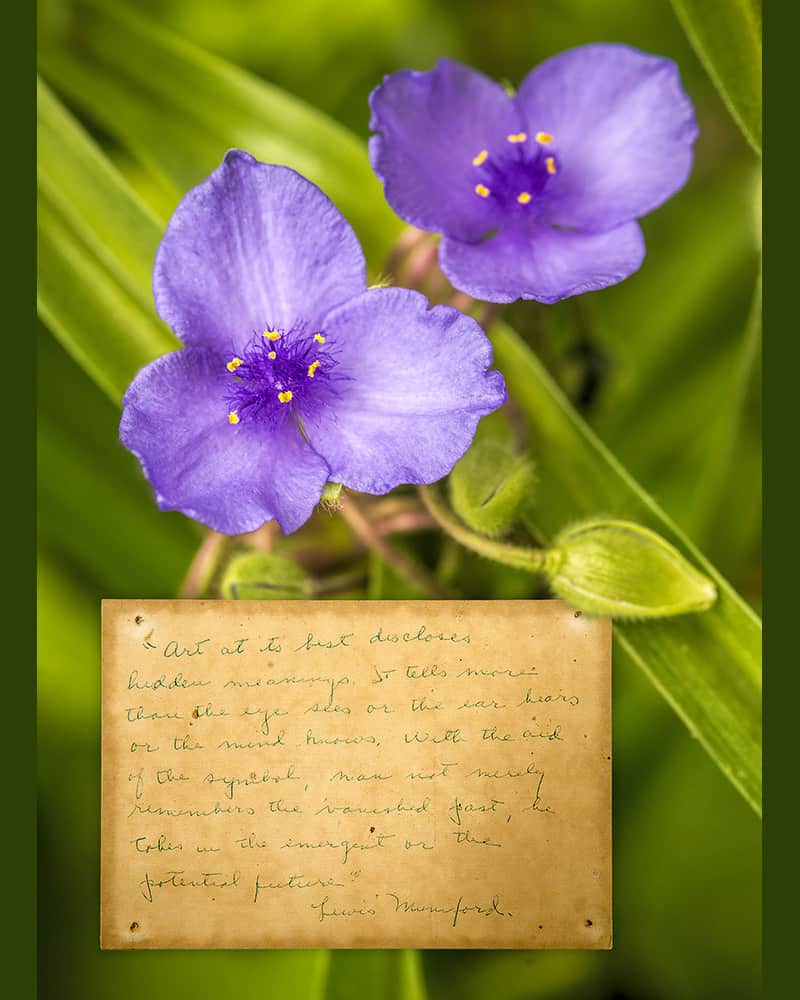 "Art at its best discloses
hidden meanings. It tells more
than the eye sees or the ear hears
or the mind knows. With the aid
of the symbol, man not merely
remembers the vanished past, he
takes in the emergent or the
potential future"
Lewis Mumford.